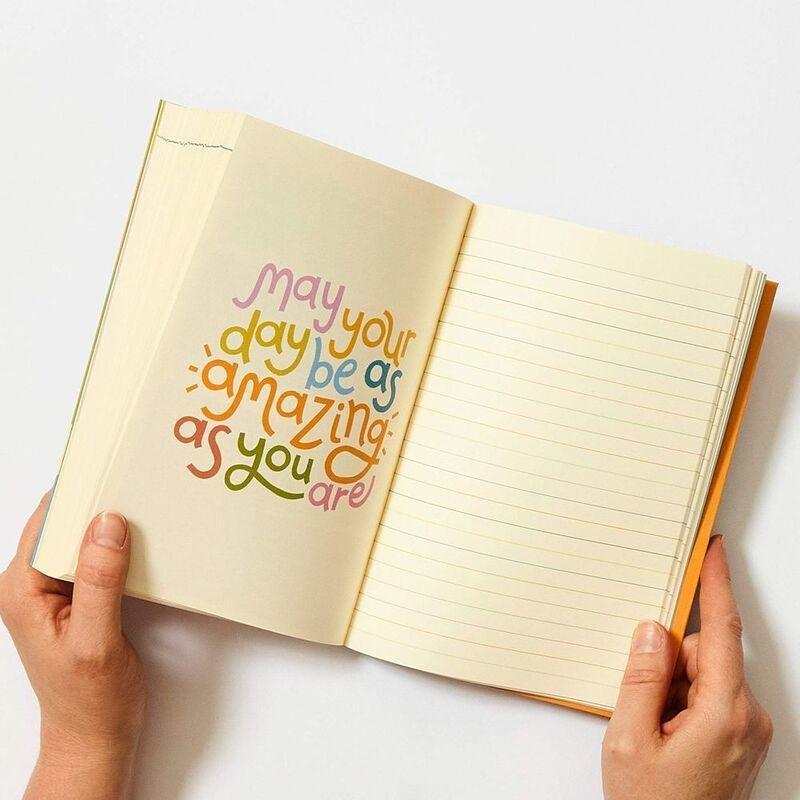 may
day your
be as
amazing
as you
are